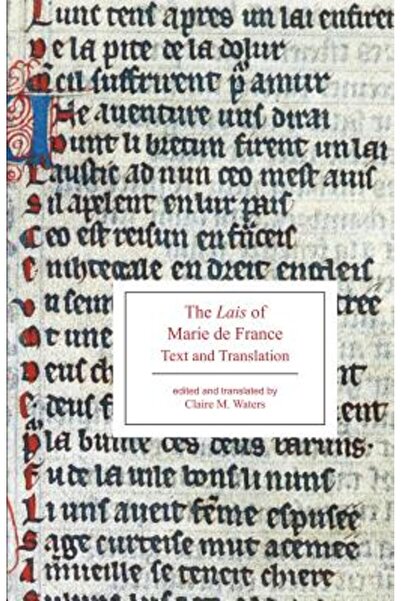 Lunc tens apres un lai enfirent
De la pite de la dolur
Q cil suffrirent p amur
Une aventure vus dirai
Dunt li bretun firent un lai
Laustic ad nun ceo mest avis
Si lapelent en lur pais
Ceo est reisun en franceis
E nihtegale en dreit engleis
n seint tree
Ot une
Deus ch nt
E deus f ent
P la bunte des deus baruns.
Fu de la vile bons li nuns
Li uns aveit feme espusee
Sage curteise mut acemee
A mveille se teneit chiere
The Lais of
Marie de France
Text and Translation
edited and translated by
Claire M. Waters